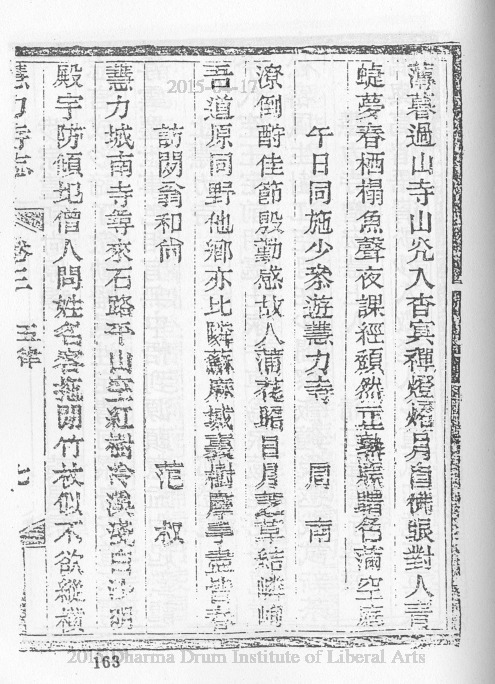 薄暮過山寺山光入杳冥禪燈烟月白佛張對人青
蜨夢春栖榻魚聲夜課經頹然正熟㾕名滿空庭
午日同施少叅遊慧力寺 周南
潦倒酧佳節殷勤感故人蒲花賜日月艾草結嶙峋
吾道原同野他鄉亦比隣蘇麻城裏樹摩手盡皆春
訪閒翁和尙 范叔
慧力城南寺尋來石路平山空紅樹冷溪淺白沙明
殿宇防傾圮僧人問姓名客拖閒竹杖似不欲縱橫
慧力寺志 卷三 五律 七
163
2015-04-17
2015 Dharma Drum Institute of Liberal Arts